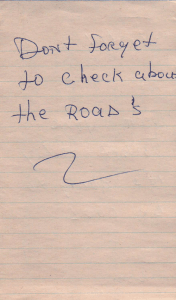 Dont forget
to check about
the ROAD's